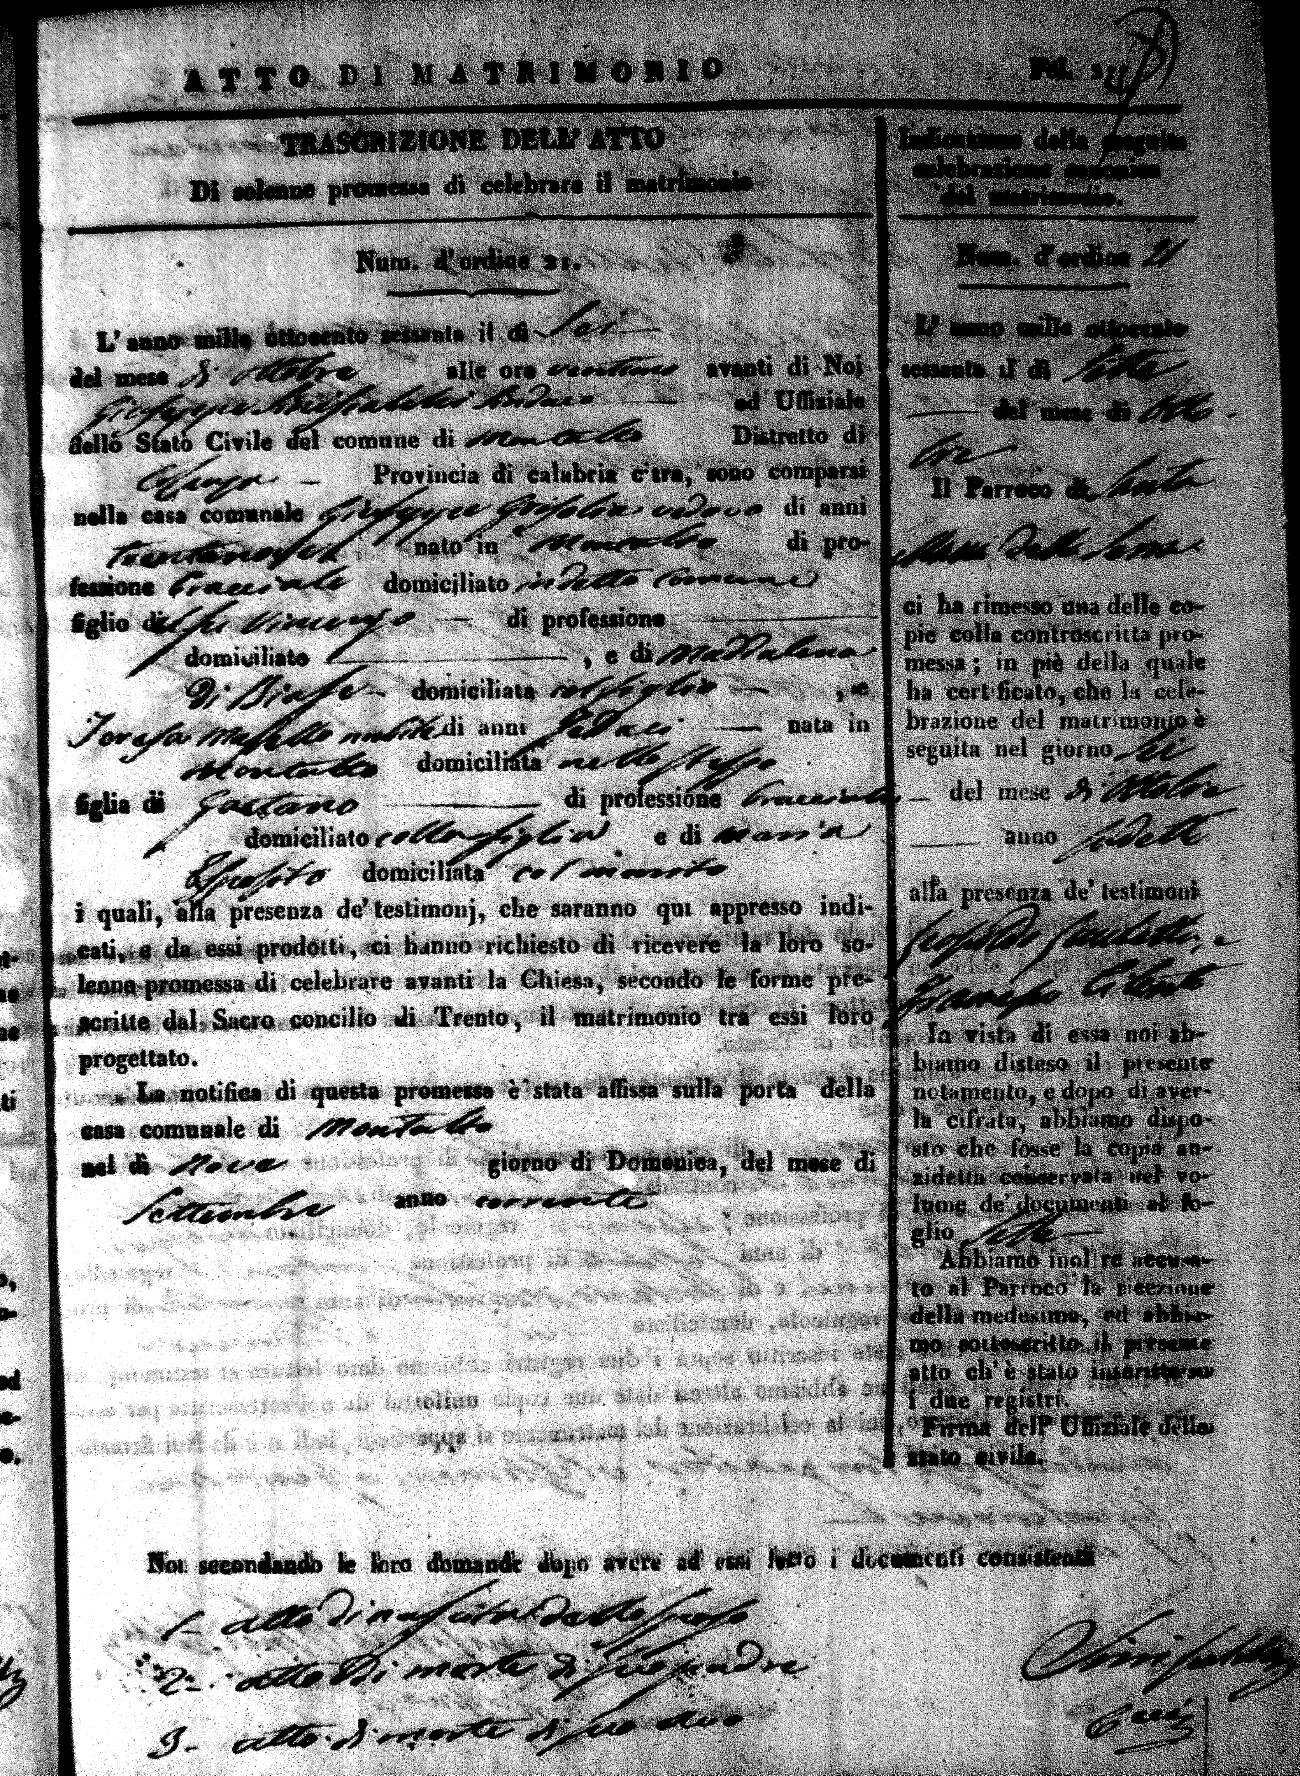 ATTO DI MATRIMONIO
Fol.
TRASCRIZIONE DELL' ATTO
Di solenne promessa di celebrare il matrimonio
Num. d'ordine 21.
L' anno mille ottocento sessanta il dì Sei
del mese di ottobre alle ore ventuno avanti di Noi
Giuseppe ed Uffiziale
dello Stato Civile del comune di Montalto Distretto di
Cosenza Provincia di calabria citra, sono comparsi
nella casa comunale Giuseppe Grisolia vedovo di anni
nato in Montalto di pro-
fessione bracciale domiciliato in detto Comune
figlio di Vincenzo di professione
domiciliato , e di Maddalena
di Biase domiciliata col figlio , e
Teresa nubile di anni Sedici nata in
Montalto domiciliata nello stesso
figlia di Gaetano di professione bracciale
domiciliato colla figlia e di Maria
Esposito domiciliata col marito
i quali, alla presenza de' testimonj, che saranno qui appresso indi-
cati, e da essi prodotti, ci hanno richiesto di ricevere la loro so-
lenne promessa di celebrare avanti la Chiesa, secondo le forme pre-
scritte dal Sacro concilio di Trento, il matrimonio tra essi loro
progettato.
La notifica di questa promessa è stata affissa sulla porta della
casa comunale di Montalto
nel dì Nove giorno di Domenica, del mese di
Settembre anno corrente
Noi secondando le loro domande dopo avere ad essi letto i documenti consistenti
1- atto di nascita dello sposo
2- atto di morte di suo padre
3- atto di morte di suo avo
Indicazione della seguita
celebrazione canonica
del matrimonio.
Num. d'ordine 21
L' anno mille ottocento
sessanta il dì Sette
del mese di Otto-
bre
Il Parroco di Santa
Maria della Serra
ci ha rimesso una delle co-
pie colla controscritta pro-
messa; in piè della quale
ha certificato, che la cele-
brazione del matrimonio è
seguita nel giorno Sei
del mese di Ottobre
anno sudetto
alla presenza de' testimoni
In vista di essa noi ab-
biamo disteso il presente
notamento, e dopo di aver-
la cifrata, abbiamo dispo-
sto che fosse la copia an-
zidetta conservata nel vo-
lume de' documenti al fo-
glio Sette
Abbiamo inoltre accusa-
to al Parroco la ricezione
della medesima, ed abbia-
mo sottoscritto il presente
atto ch' è stato inscritto su
i due registri.
Firma dell' Uffiziale dello
stato civile.